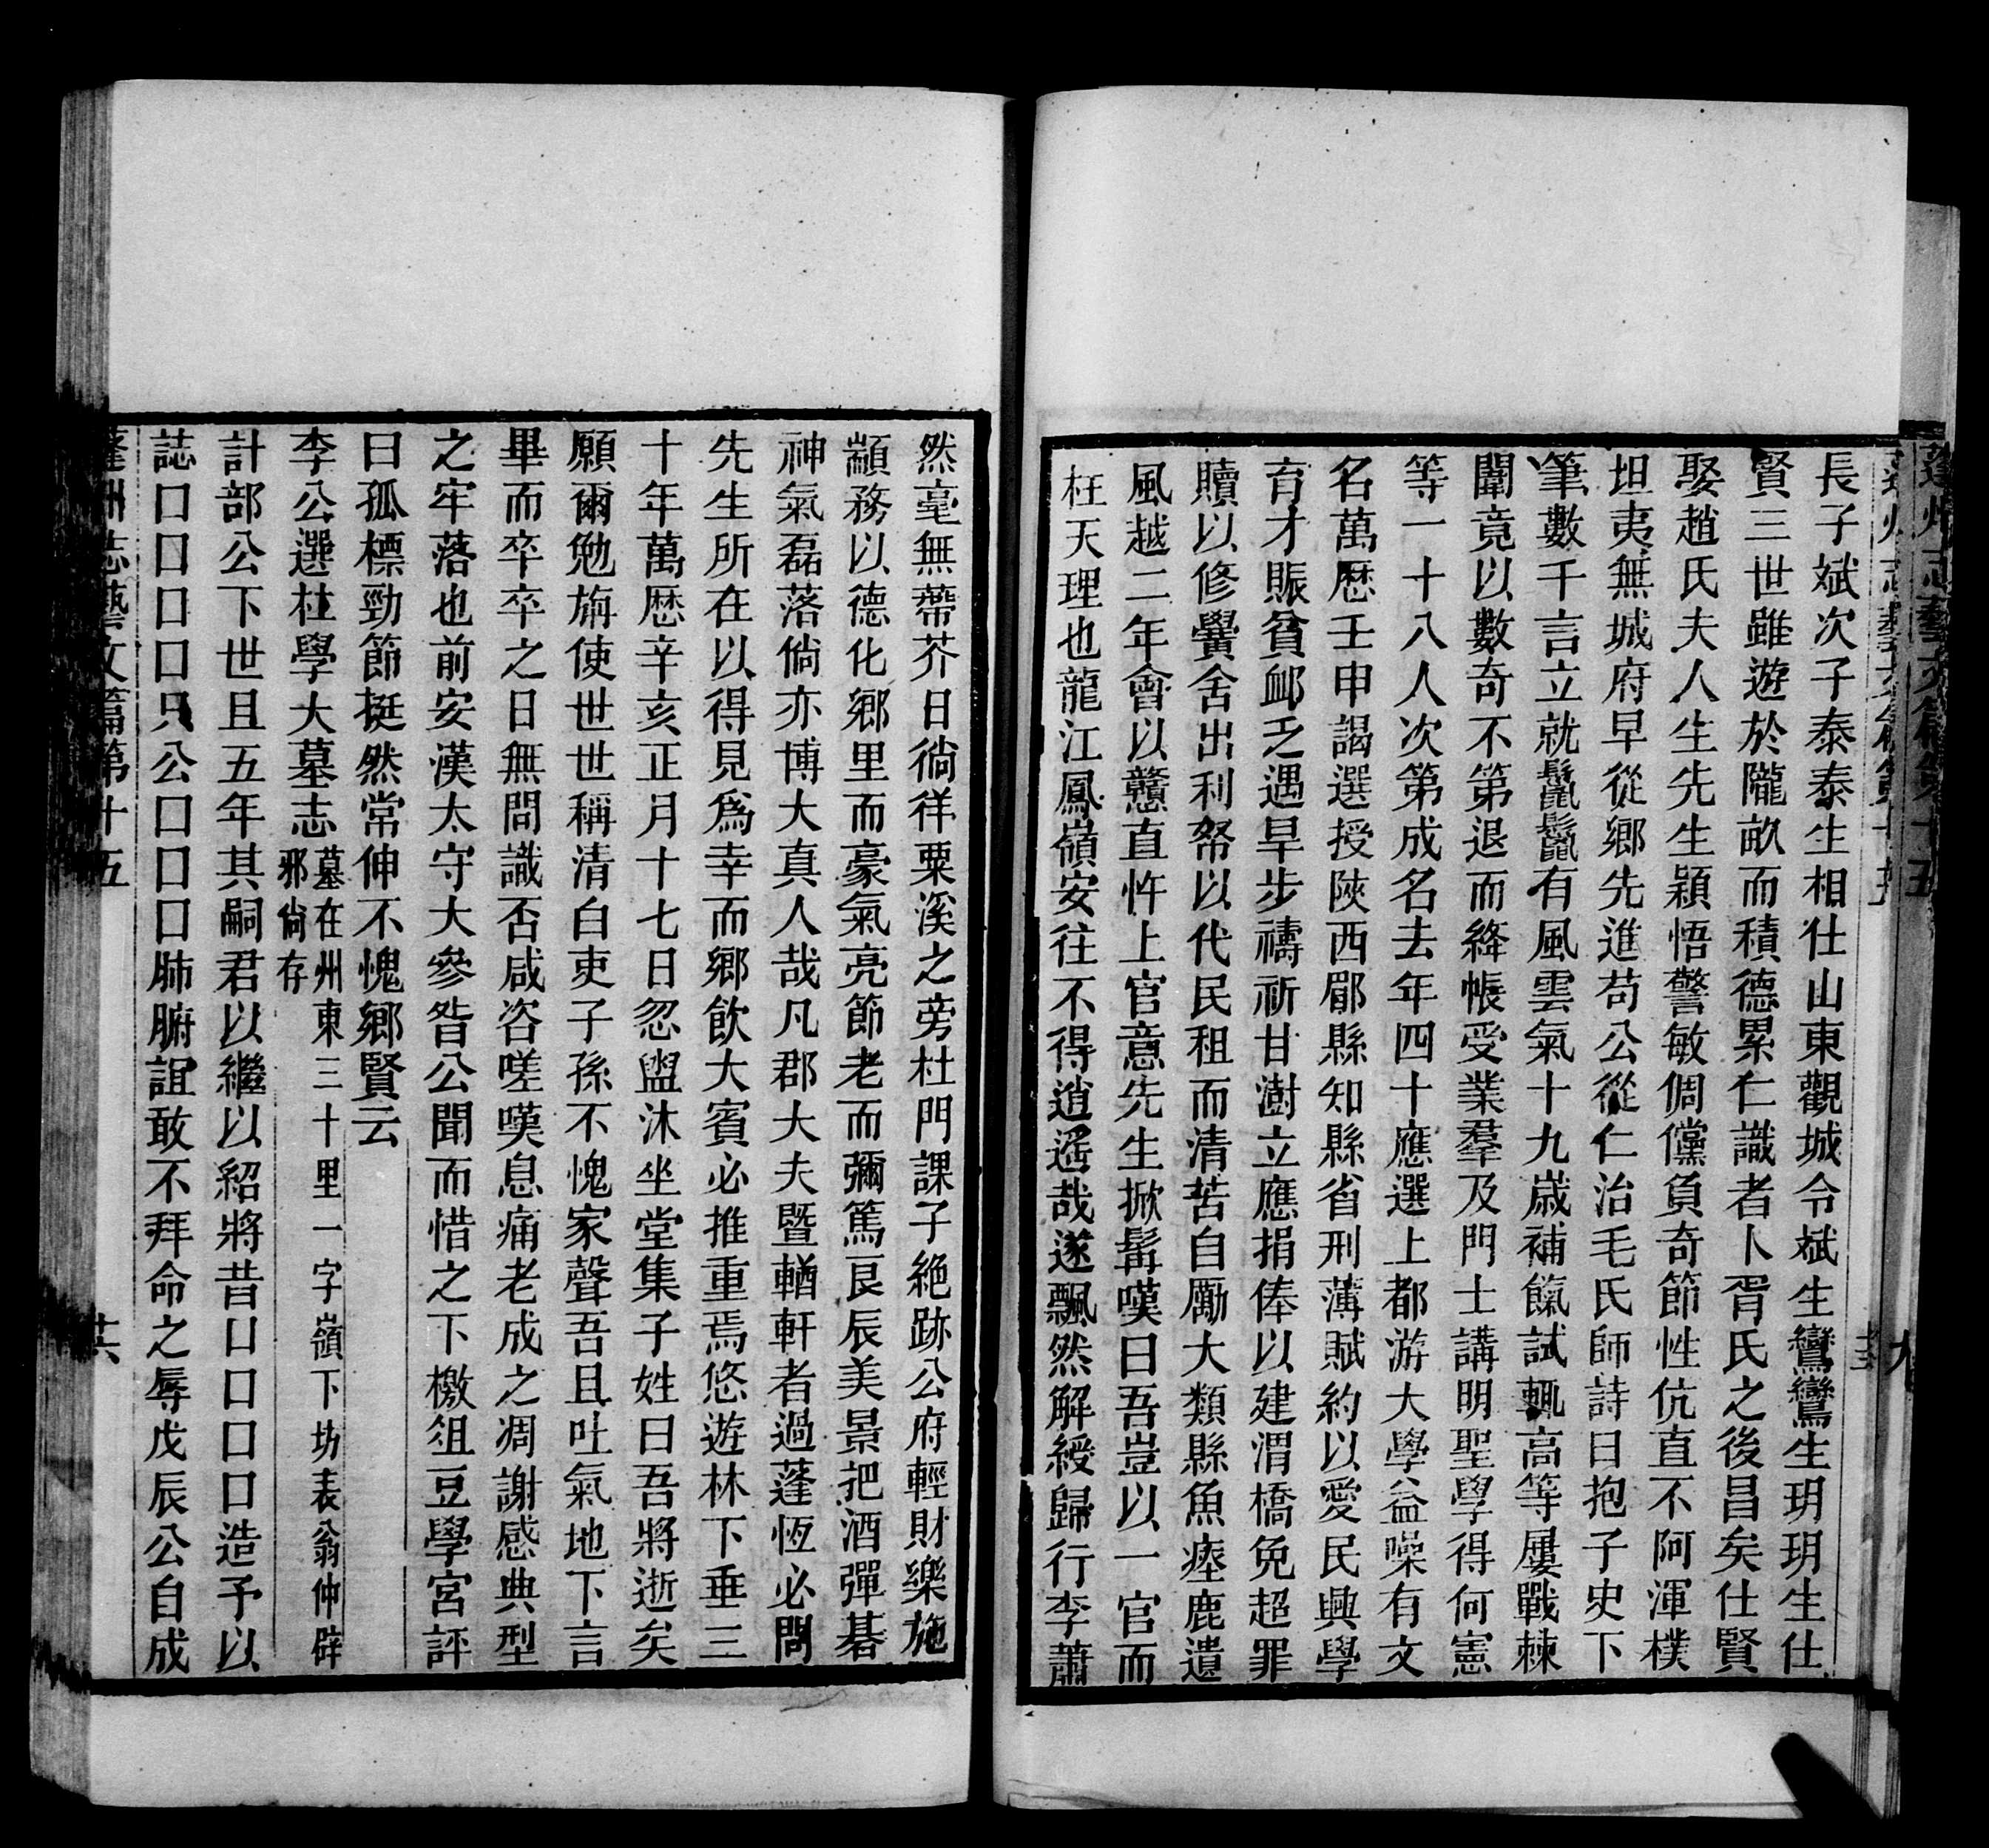 長子斌次子泰泰生相仕山東觀城令斌生鸞鸞生玥玥生仕
賢三世雖遊於隴畝而積德累仁識者卜胥氏之後昌矣仕賢
娶趙氏夫人生先生穎悟警敏倜儻負奇節性伉直不阿渾樸
坦夷無城府早從鄉先進苟公從仁治毛氏師詩日抱子史下
筆數千言立就鬣鬣有風雲氣十九歲補餼試輒高等屢戰棘
闈竟以數奇不第退而絳帳受業羣及門士講明聖學得何憲
等一十八人次第成名去年四十應選上都游大學益噪有文
名萬歷壬申謁選授陝西郿縣知縣省刑薄賦約以愛民興學
育才賑貧卹乏遇旱步禱祈甘澍立應捐俸以建渭橋免超罪
贖以修黌舍出利帑以代民租而清苦自勵大類縣魚瘞鹿遺
風越二年會以戇直忤上官意先生掀髯嘆曰吾豈以一官而
枉天理也龍江鳳嶺安往不得逍遥哉遂飄然解綬歸行李蕭
然毫無蔕芥日徜徉粟溪之旁杜門課子絶跡公府輕財樂施
顓務以德化鄉里而豪氣亮節老而彌篤良辰美景把酒彈棊
神氣磊落倘亦博大真人哉凡郡大夫暨輶軒者過蓬恆必問
先生所在以得見爲幸而鄉飲大賓必推重焉悠遊林下垂三
十年萬歷辛亥正月十七日忽盥沐坐堂集子姓曰吾將逝矣
願爾勉旃使世世稱清白吏子孫不愧家聲吾且吐氣地下言
畢而卒卒之日無問識否咸咨嗟嘆息痛老成之凋謝感典型
之牢落也前安漢太守大參昝公聞而惜之下檄俎豆學宮評
曰孤標勁節挺然常伸不愧鄉賢云
李公選杜學大墓志墓在州東三十里一字嶺下坊表翁仲辟
邪尙存
計部公下世且五年其嗣君以繼以紹將昔口口口口造予以
誌口口口口只公口口口肺腑誼敢不拜命之辱戊辰公自成
蓬州志藝文篇第十五